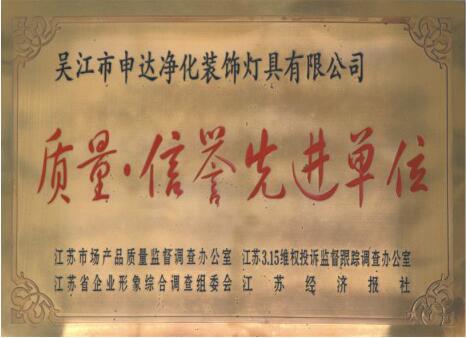 吴江市申达净化装饰灯具有限公司
质量·信誉先进单位
江苏市场产品质量监督调查办公室 江苏3.15维权投诉监督跟踪调查办公室
江苏省企业形象综合调查组委会 江苏经济报社